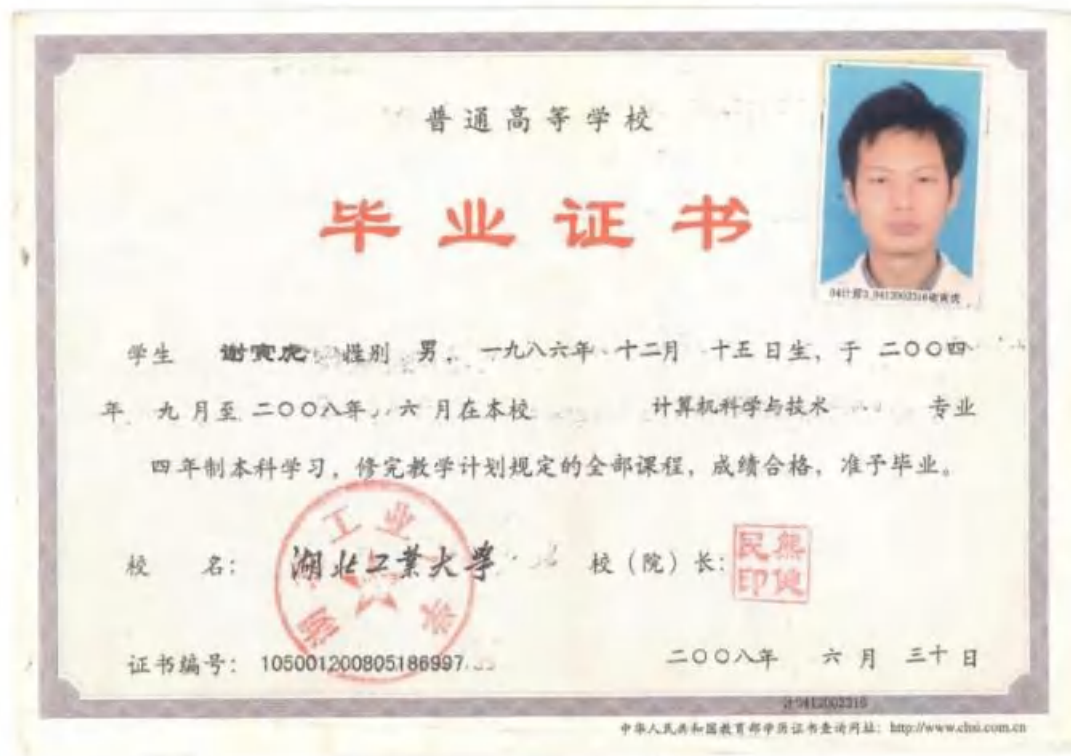 普通高等学校
毕业证书
04计算3_0412002316谢寅虎
学生 谢寅虎 性别 男，一九八六年 十二月 十五日生，于 二〇〇四
年 九月至 二〇〇八年 六 月在本校 计算机科学与技术 专业
四年制本科学习，修完教学计划规定的全部课程，成绩合格，准予毕业。
校 名： 湖北工業大学 校（院）长：
熊健民印
湖北工业大学
证书编号： 105001200805186997
二〇〇八年 六月 三十日
中华人民共和国教育部学历证书查询网址：http://www.chsi.com.cn